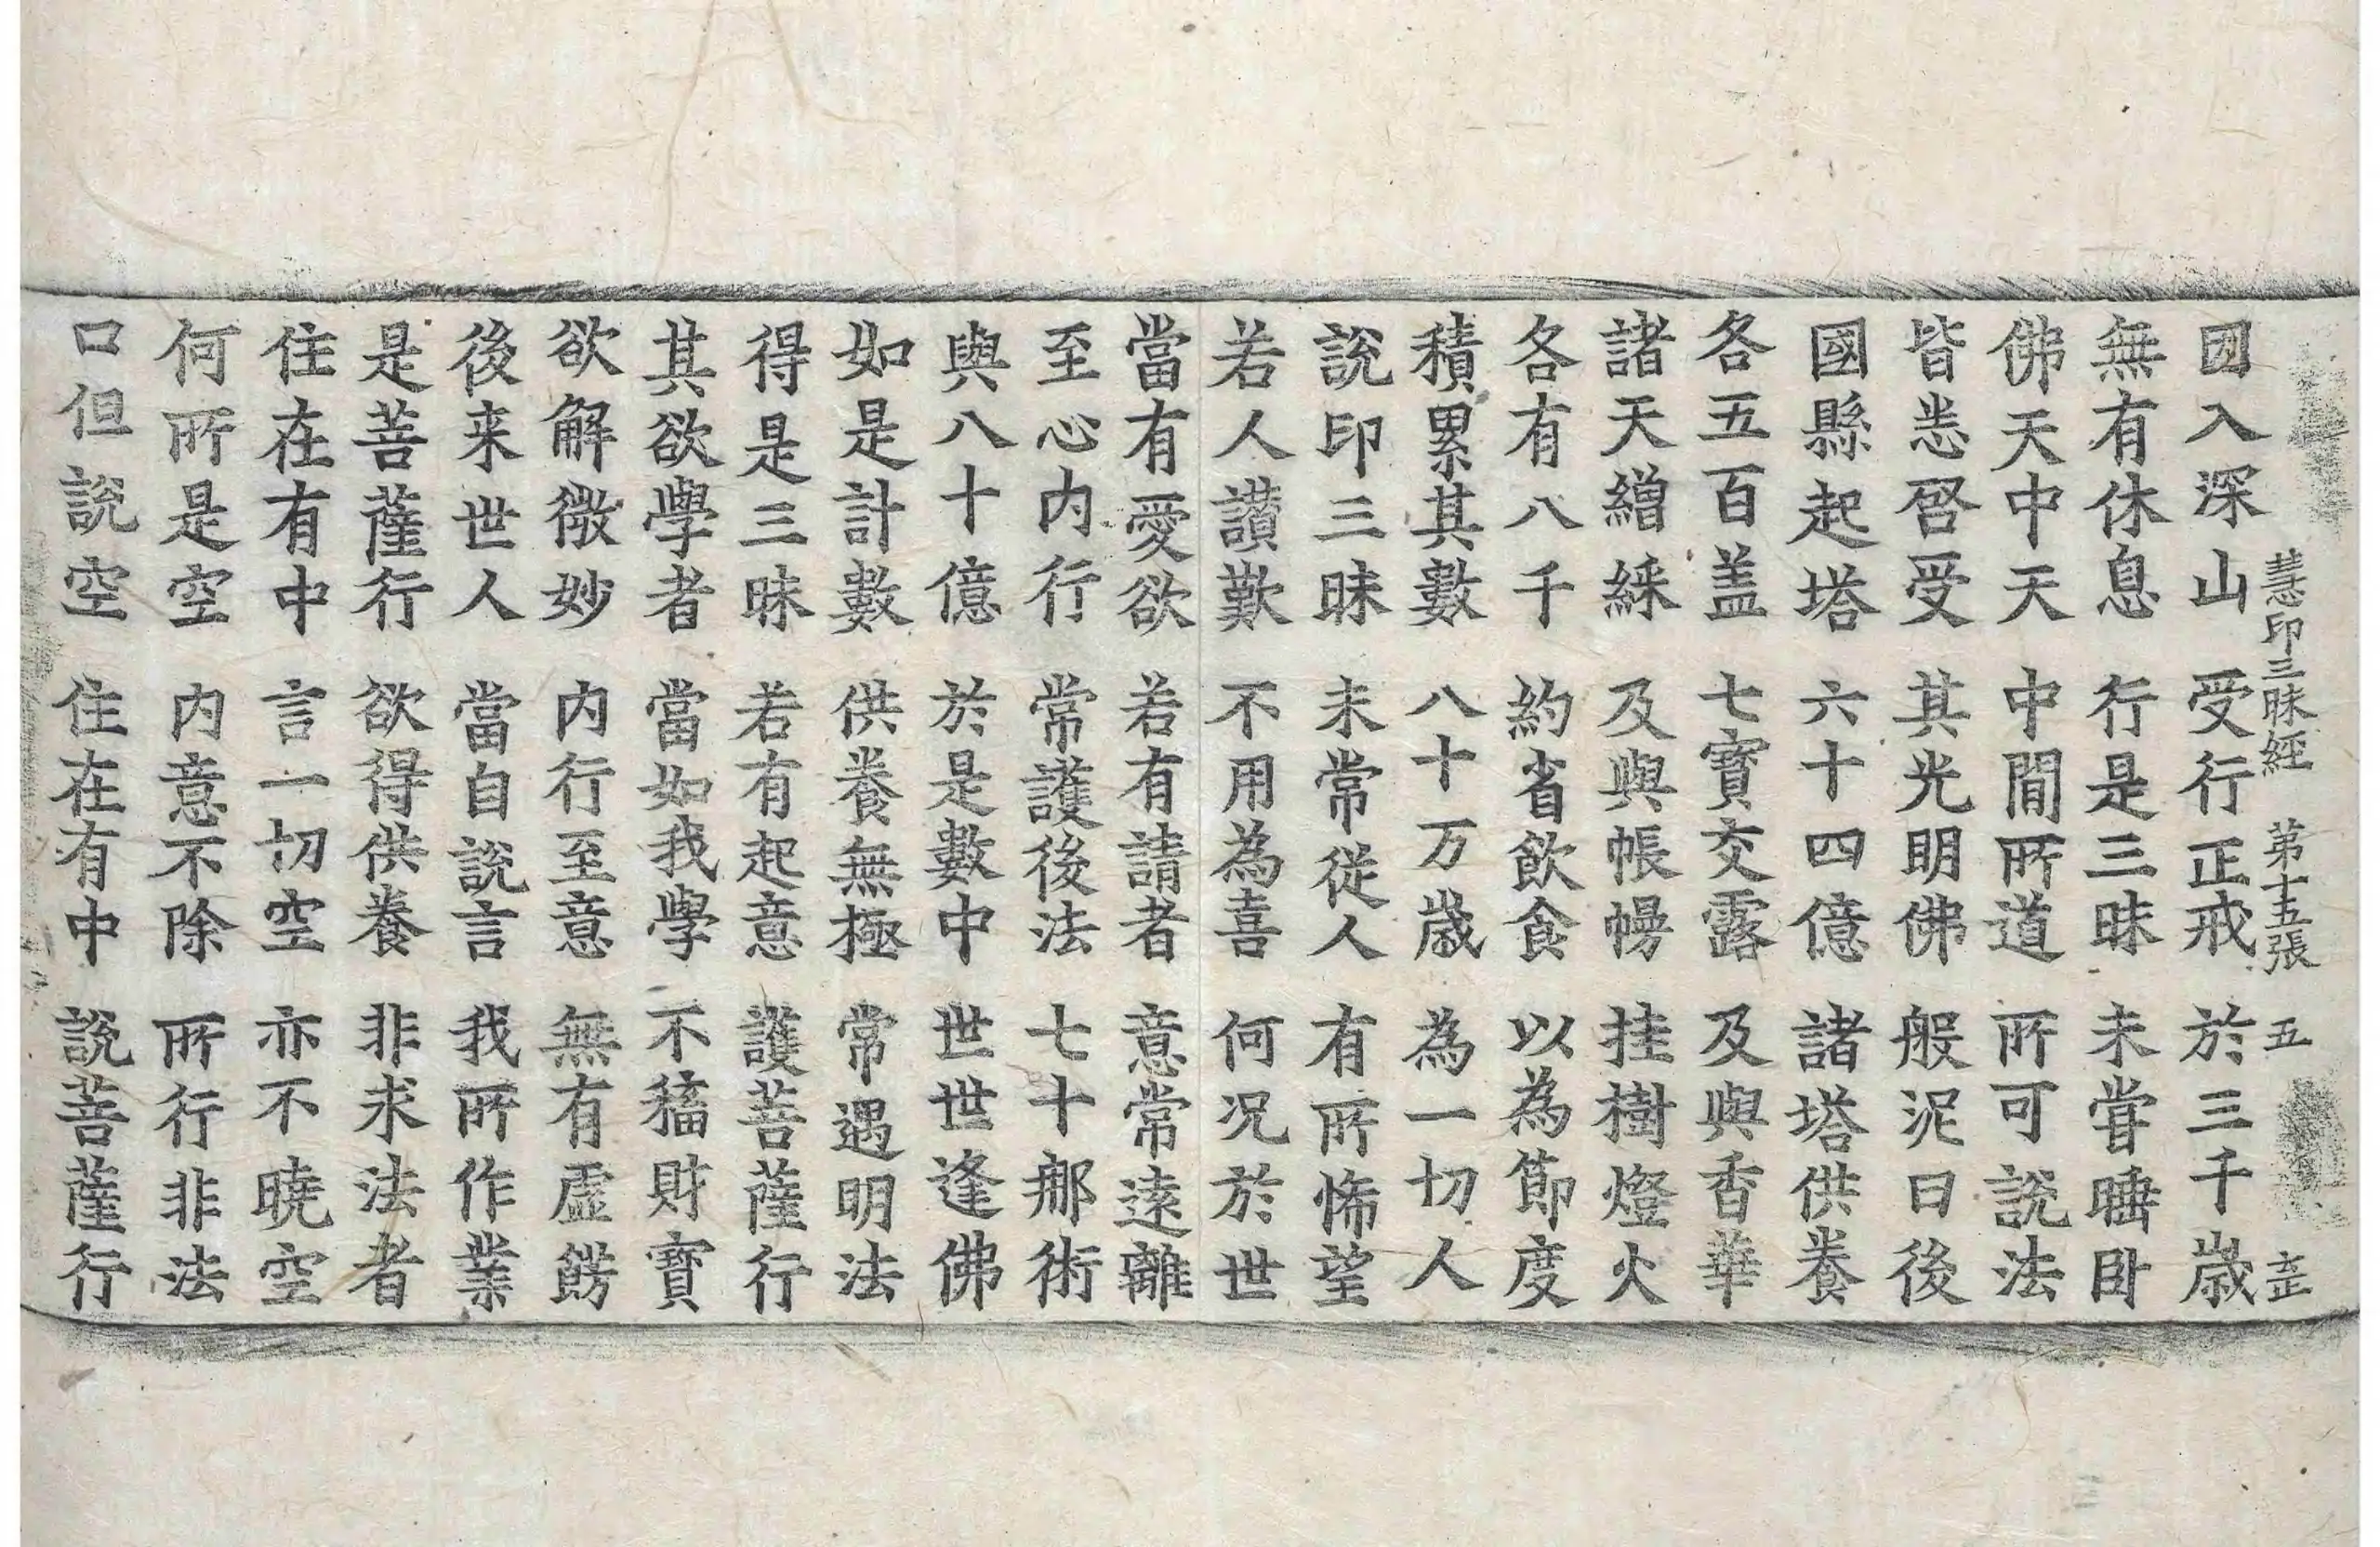 慧印三昧經 第十五張 五
因入深山 受行正戒 於三千歲
無有休息 行是三昧 未甞睡卧
佛天中天 中閒所道 所可說法
皆悉啓受 其光明佛 般泥曰後
國縣起塔 六十四億 諸塔供養
各五百盖 七寶交露 及與香華
諸天繒綵 及與帳幔 挂樹燈火
各有八千 約省飲食 以為節度
積累其數 八十万歲 為一切人
說印三昧 未常從人 有所悕望
若人讃歎 不用為喜 何況於世
當有愛欲 若有請者 意常遠離
至心内行 常護後法 七十那術
與八十億 於是數中 世世逢佛
如是計數 供養無極 常遇明法
得是三昧 若有起意 護菩薩行
其欲學者 當如我學 不𥡴財寶
欲解微妙 内行至意 無有虛餝
後来世人 當自說言 我所作業
是菩薩行 欲得供養 非求法者
住在有中 言一切空 亦不曉空
何所是空 内意不除 所行非法
口但說空 住在有中 說菩薩行